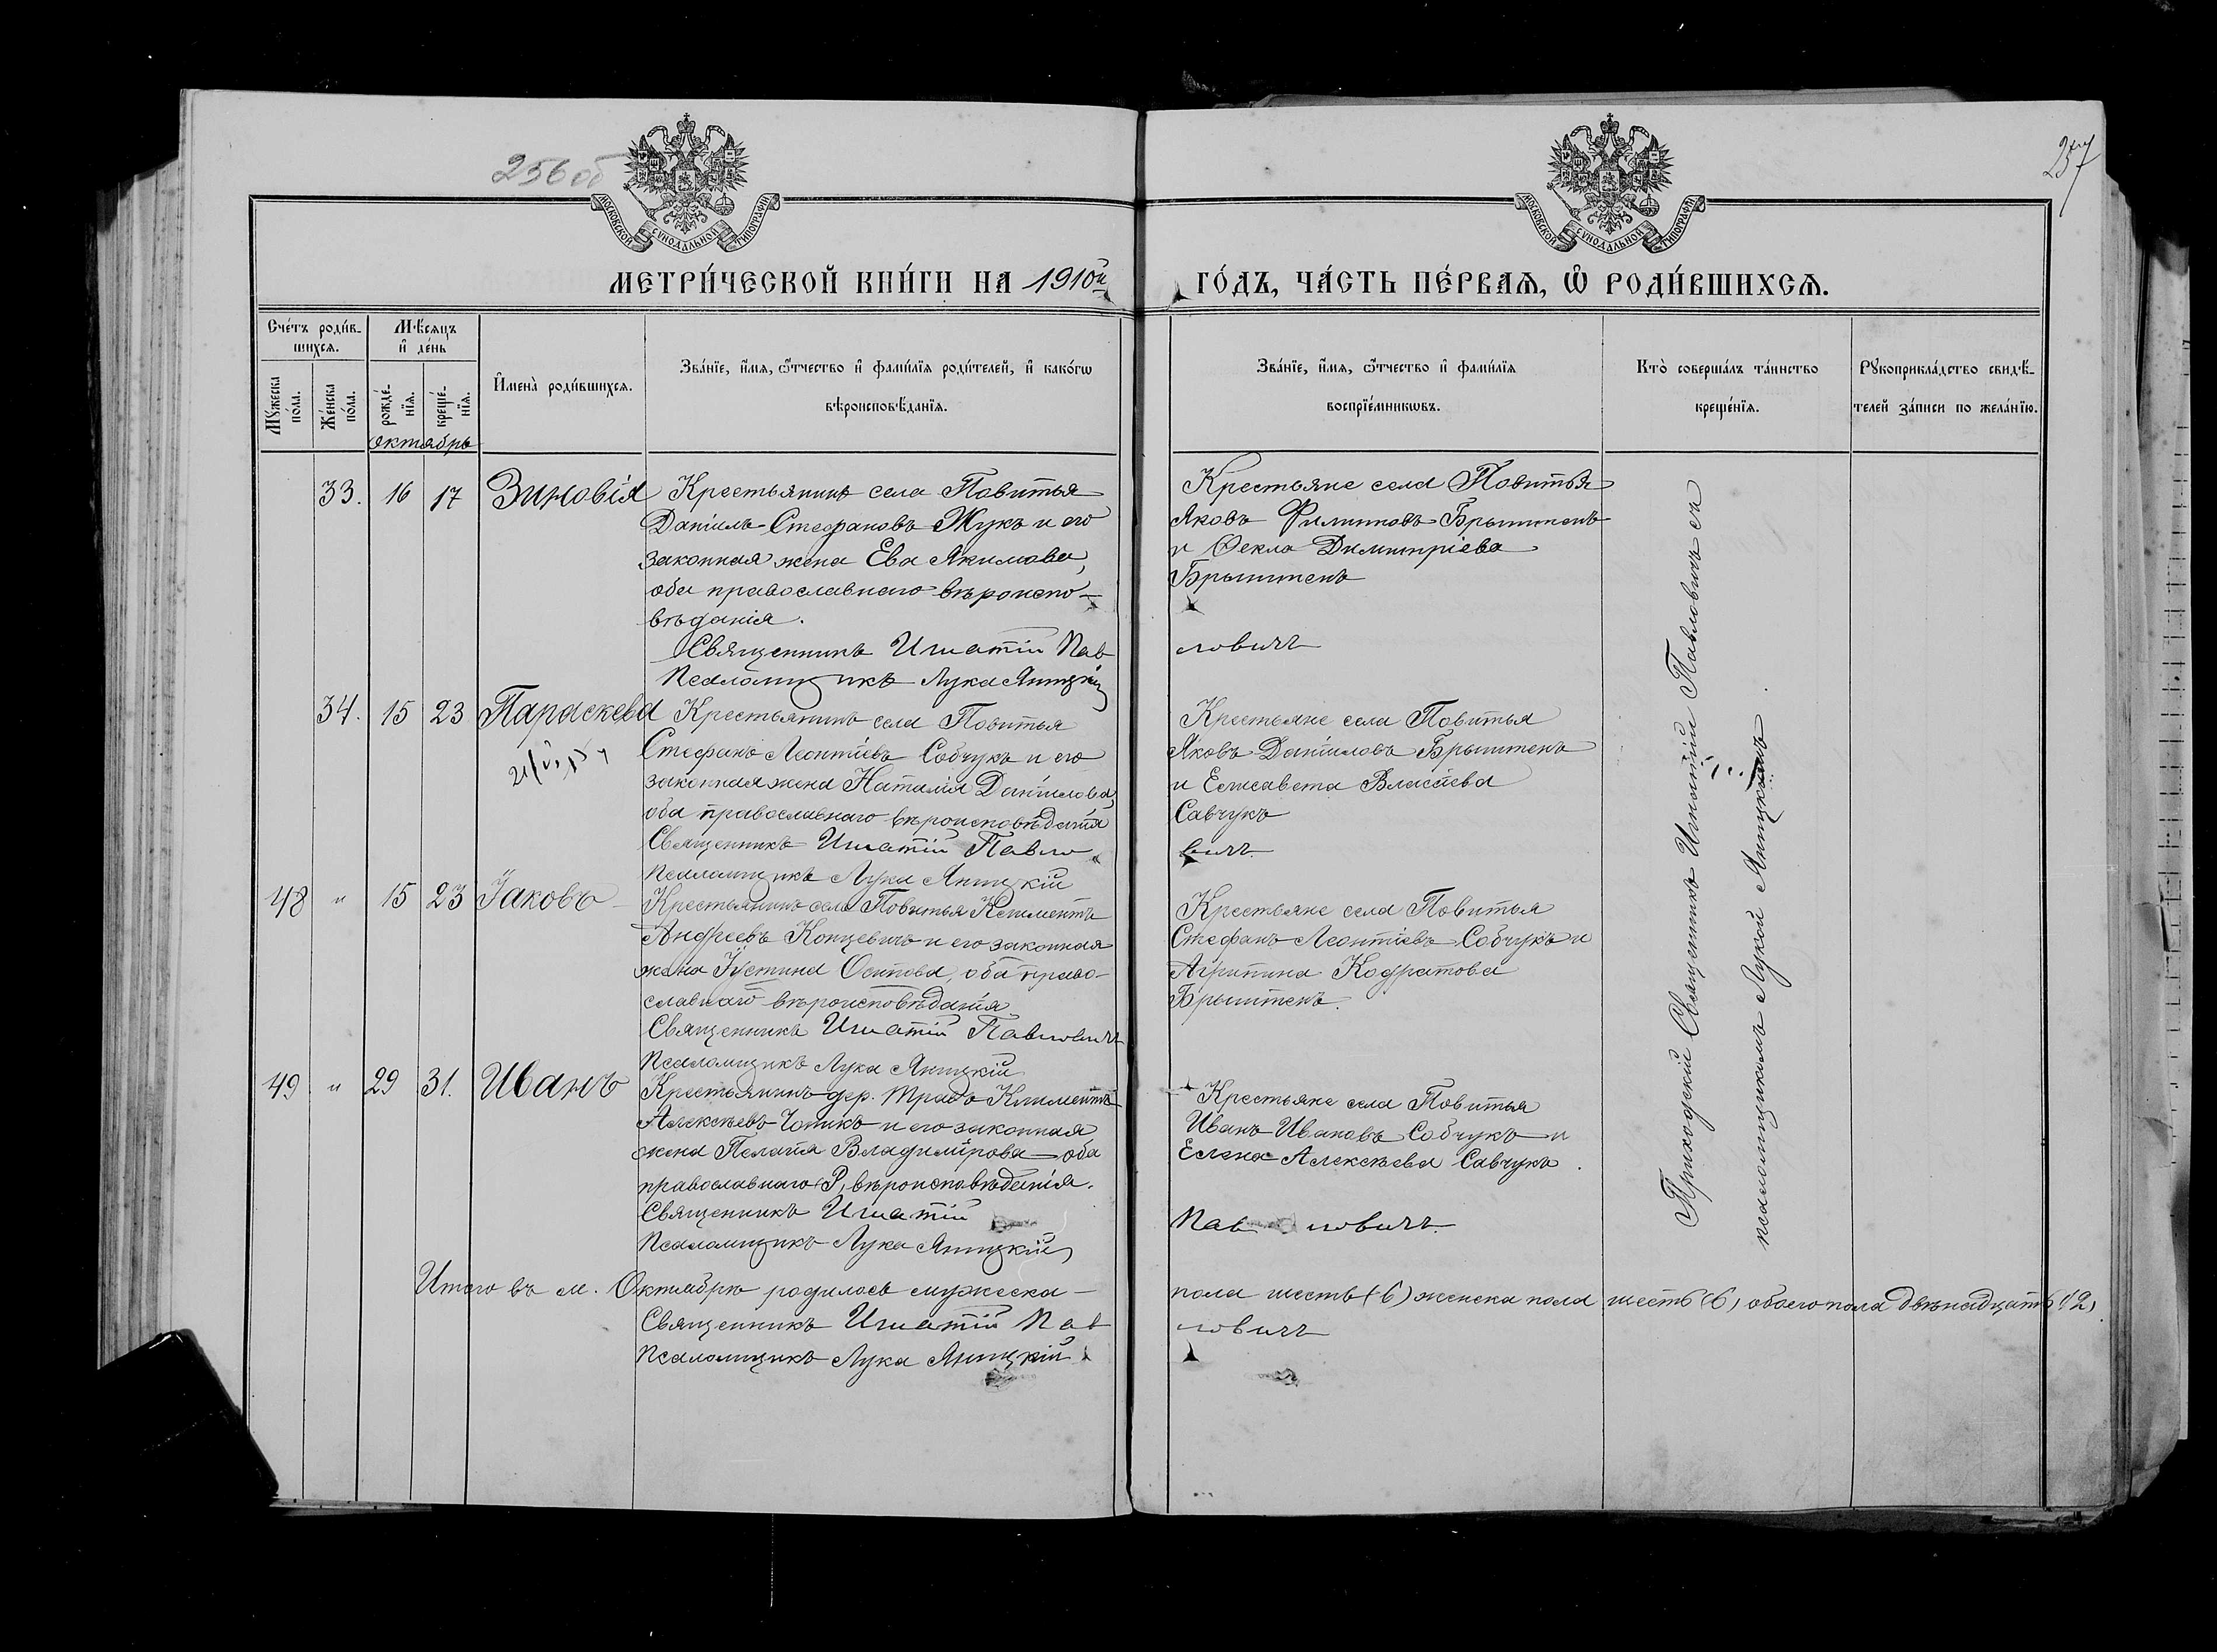 256 об
257
МОСКОВСКОЙ СУНОДАЛЬНОЙ ТИПОГРАФІИ
МОСКОВСКОЙ СУНОДАЛЬНОЙ ТИПОГРАФІИ
МЕТРИ́ЧЕСКОЙ КНИ́ГИ НА 1910й
ГО́ДЪ, ЧА́СТЬ ПЕ́РВАѦ, Ѡ҆ РОДИ́ВШИХСѦ.
Сче́тъ роди́в-
шихсѧ.
Мꙋ́жеска
по́ла.
Же́нска
по́ла.
Мѣ́сѧцъ
и҆ де́нь
рожде́-
нїѧ.
креще́-
нїѧ.
И҆мена̀ роди́вшихсѧ.
Зва́нїе, и҆́мѧ, ѻ҆́тчество и҆ фами́лїѧ роди́телей, и҆ како́гѡ
вѣроисповѣ́данїѧ.
Зва́нїе, и҆́мѧ, ѻ҆́тчество и҆ фами́лїѧ
воспрїе́мникѡвъ.
Кто̀ соверша́лъ та́инство
креще́нїѧ.
Рꙋкоприкла́дство свидѣ́-
телей за́писи по жела́нїю.
Октябрь
33. 16 17 Зиновія
Крестьянинъ села Повитья
Даніилъ Стефановъ Жукъ и его
законная жена Ева Якимова,
оба православнаго вѣроиспо-
вѣданія.
Священникъ Игнатій Пав
Псаломщикъ Лука Яницкій
Крестьяне села Повитья
Яковъ Филиповъ Брыштенъ
и Ѳекла Димитріева
Брыштенъ
ловичъ
34. 15 23 Параскева
Крестьянинъ села Повитья
Стефанъ Леонтіевъ Собчукъ и его
законная жена Наталія Даніилова,
оба православнаго вѣроисповѣданія
Священникъ Игнатій Павло
Псаломщикъ Лука Яницкій
Крестьяне села Повитья
Яковъ Даніиловъ Брыштенъ
и Елисавета Власіева
Савчукъ
вичъ
48 " 15 23 Іаковъ
Крестьянинъ села Повитья Климентъ
Андреевъ Концевичъ и его законная
жена Іустина Осипова, оба право-
славнаго вѣроисповѣданія
Священникъ Игнатій Павловичъ
Псаломщикъ Лука Яницкій
Крестьяне села Повитья
Стефанъ Леонтіевъ Собчукъ и
Агрипина Кодратова
Брыштенъ.
49 " 29 31. Иванъ
Крестьянинъ дер. Климентъ
Алексѣевъ и его законная
жена Пелагія Владимірова оба
православнаго вѣроисповѣданія.
Священникъ Игнатій
Псаломщикъ Лука Яницкій
Крестьяне села Повитья
Иванъ Ивановъ Собчукъ и
Елена Алексѣева Савчукъ.
Павловичъ
Итого въ м. Октябрѣ родилось мужеска
пола шесть (6) женска пола шесть (6) обоего пола двѣнадцать (12).
Священникъ Игнатій Пав
ловичъ
Псаломщикъ Лука Яницкій
Приходскій Священникъ Игнатій Павловичъ съ
псаломщикомъ Лукой Яницкимъ